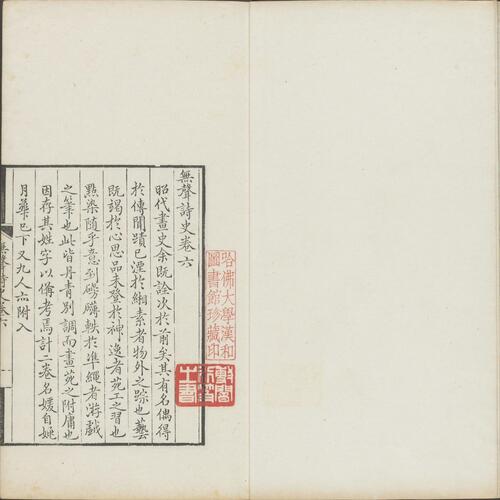 無聲詩史卷六
昭代畫史余既詮次於前矣其有名偶得
於傳聞蹟已湮於緗素者物外之踪也藝
既竭於心思品未登於神逸者苑工之習也
點染隨乎意到磅礴軼於準繩者游戲
之筆也此皆丹青別調而畫苑之附庸也
因存其姓字以備考焉計二卷名媛自姚
月華已下又九人亦附入
哈佛大學漢和
圖書館珍藏印